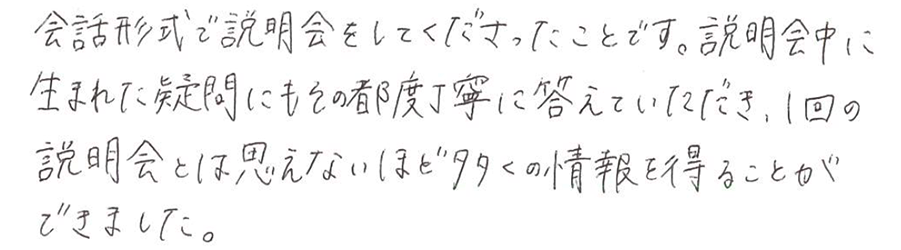 会話形式で説明会をしてくださったことです。説明会中に
生まれた疑問にもその都度丁寧に答えていただき、1回の
説明会とは思えないほど多くの情報を得ることが
できました。